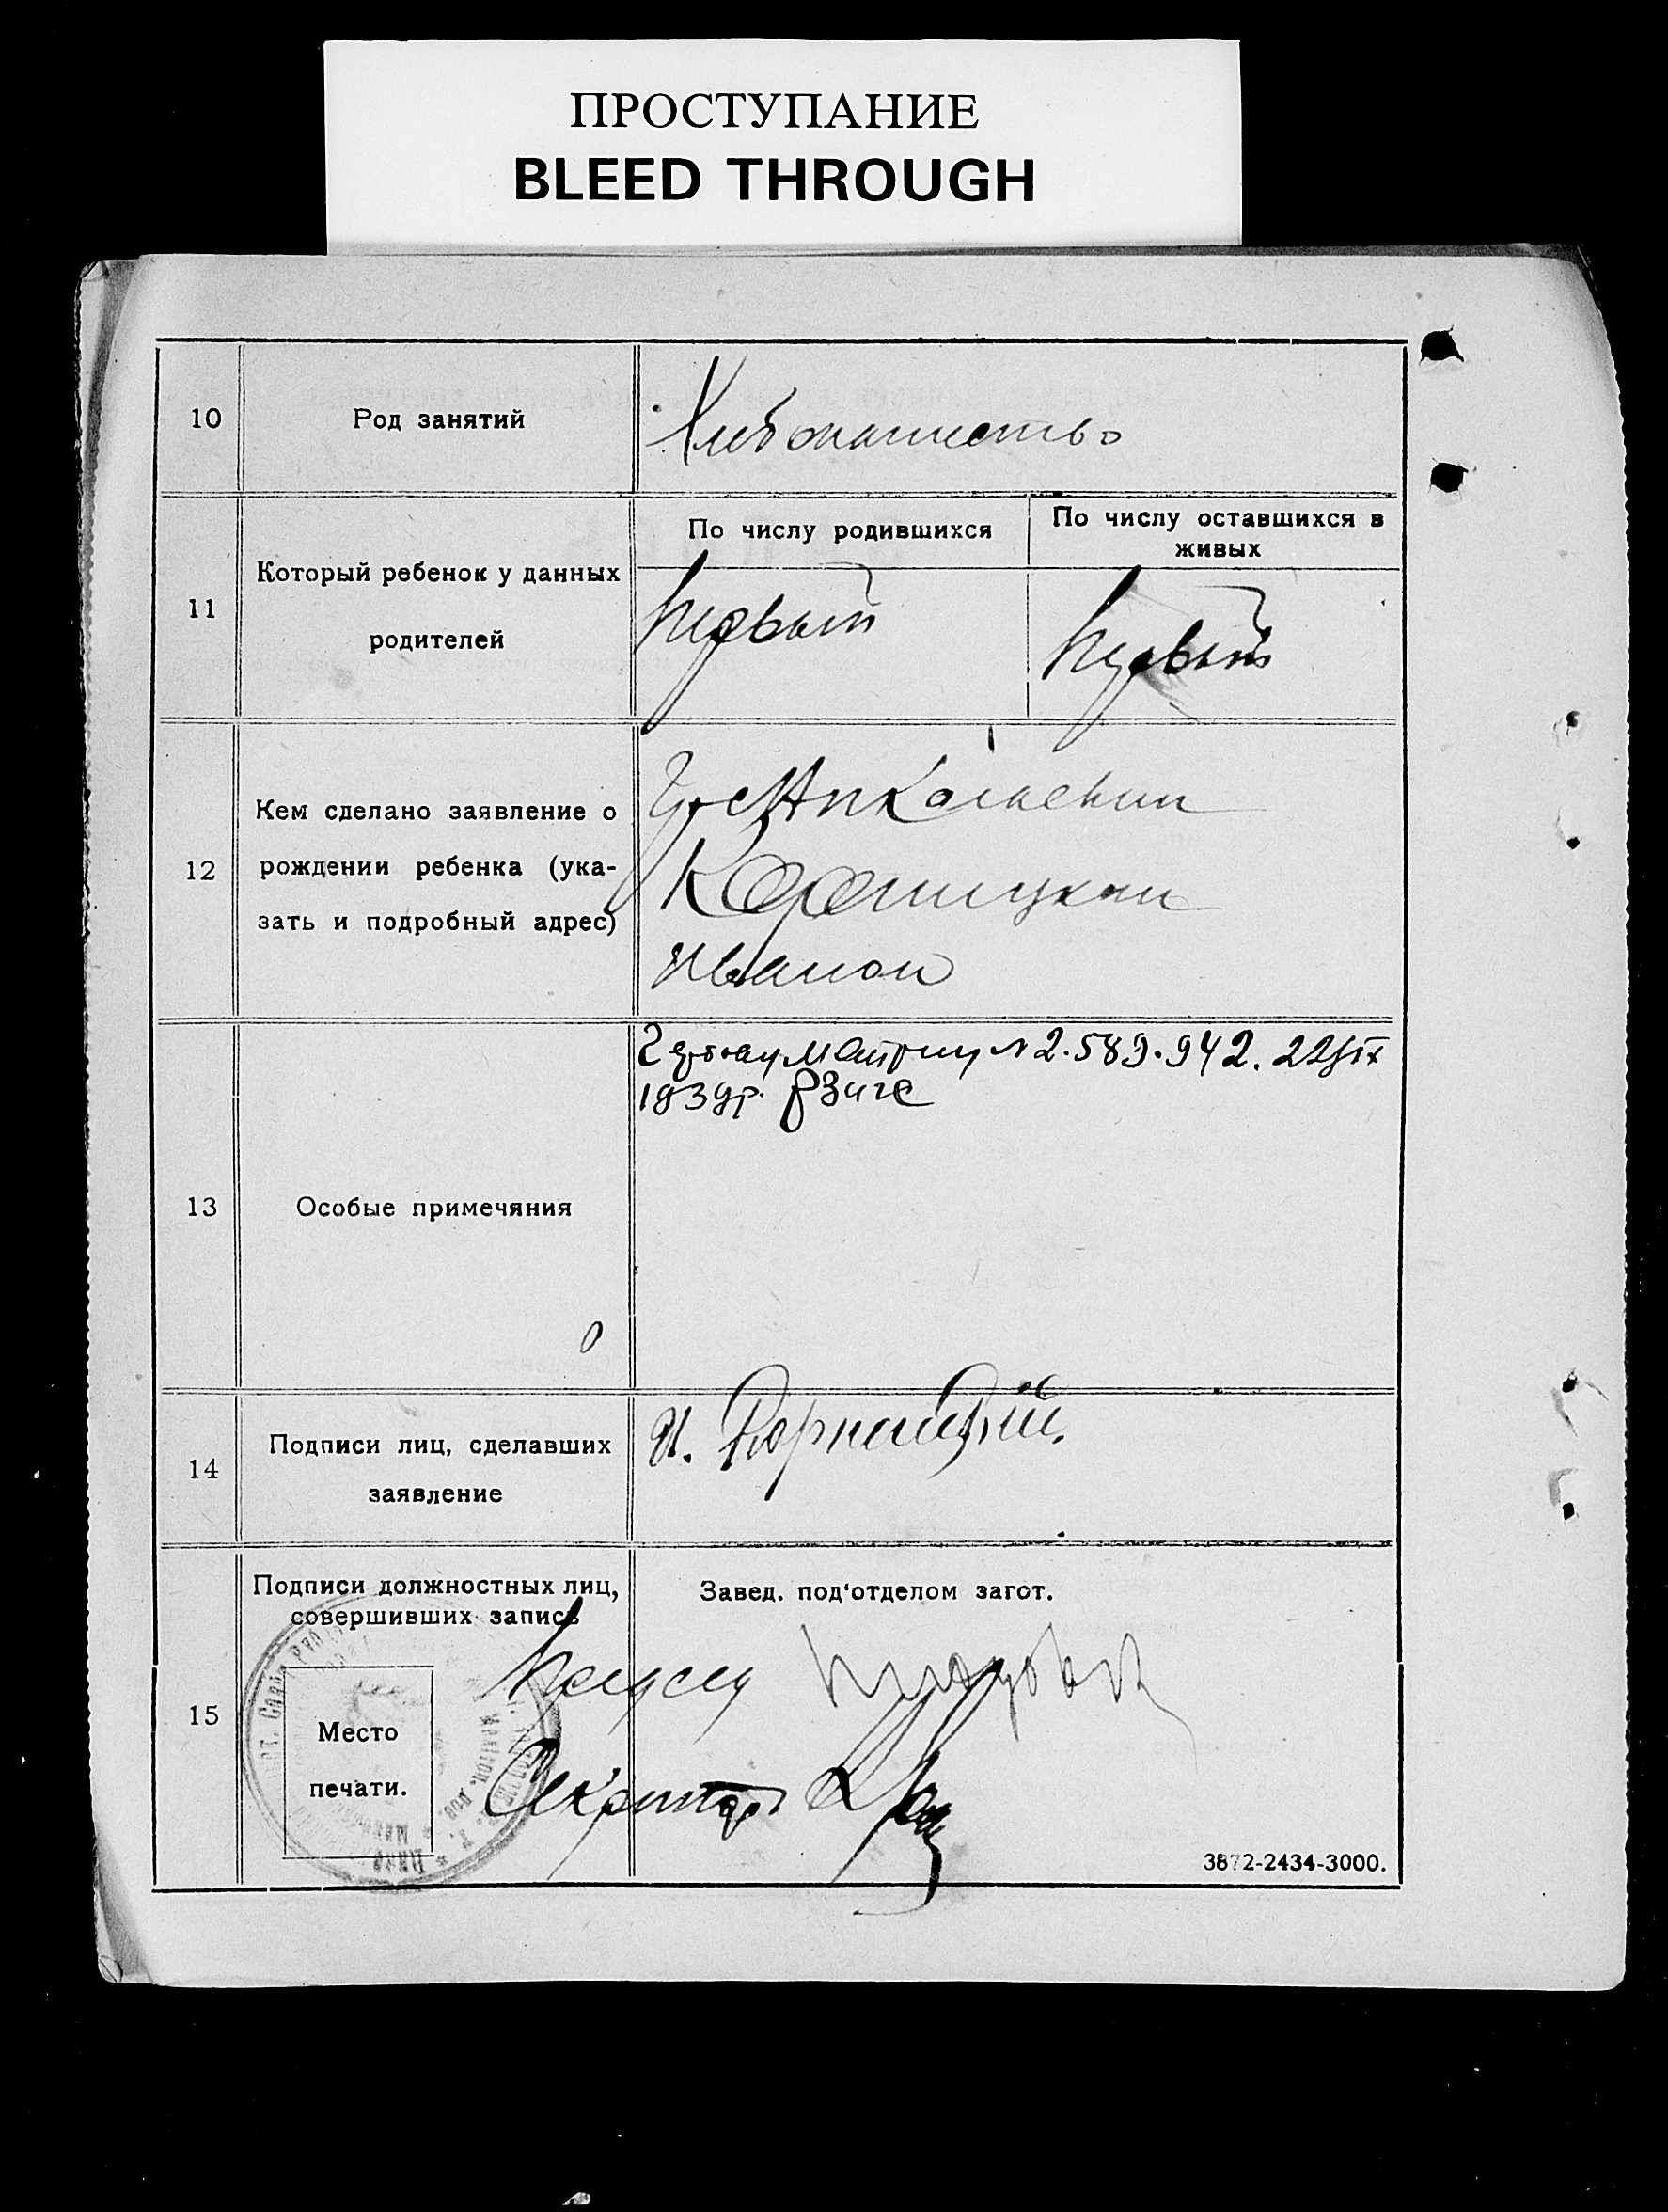 ПРОСТУПАНИЕ
BLEED THROUGH
10
Род занятий
Хлебопашество
11
Который ребенок у данных
родителей
По числу родившихся
По числу оставшихся в
живых
Первый
Первый
12
Кем сделано заявление о
рождении ребенка (ука-
зать и подробный адрес)
Корницким
Иваном
13
Особые примечяния
N 2.589.942. 22/IX
1939г.
14
Подписи лиц, сделавших
заявление
И. Корницкий.
15
Подписи должностных лиц,
совершивших запись
Завед. под'отделом загот.
Место
печати.
Секретарь
3872-2434-3000.